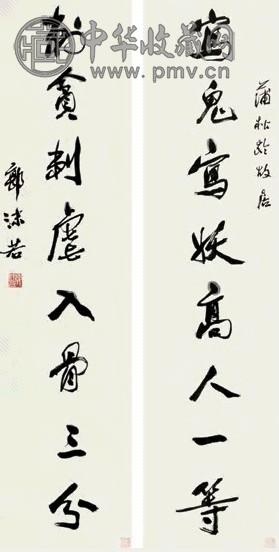 中华收藏网
www.pmv.cn
蒲松齡故居
寫鬼寫妖高人一等
刺貪刺虐入骨三分
郭沫若